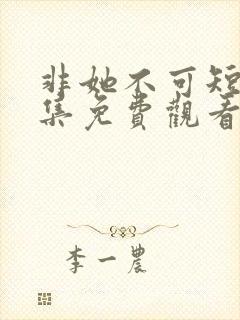 非她不可短
集免費觀看
李一農